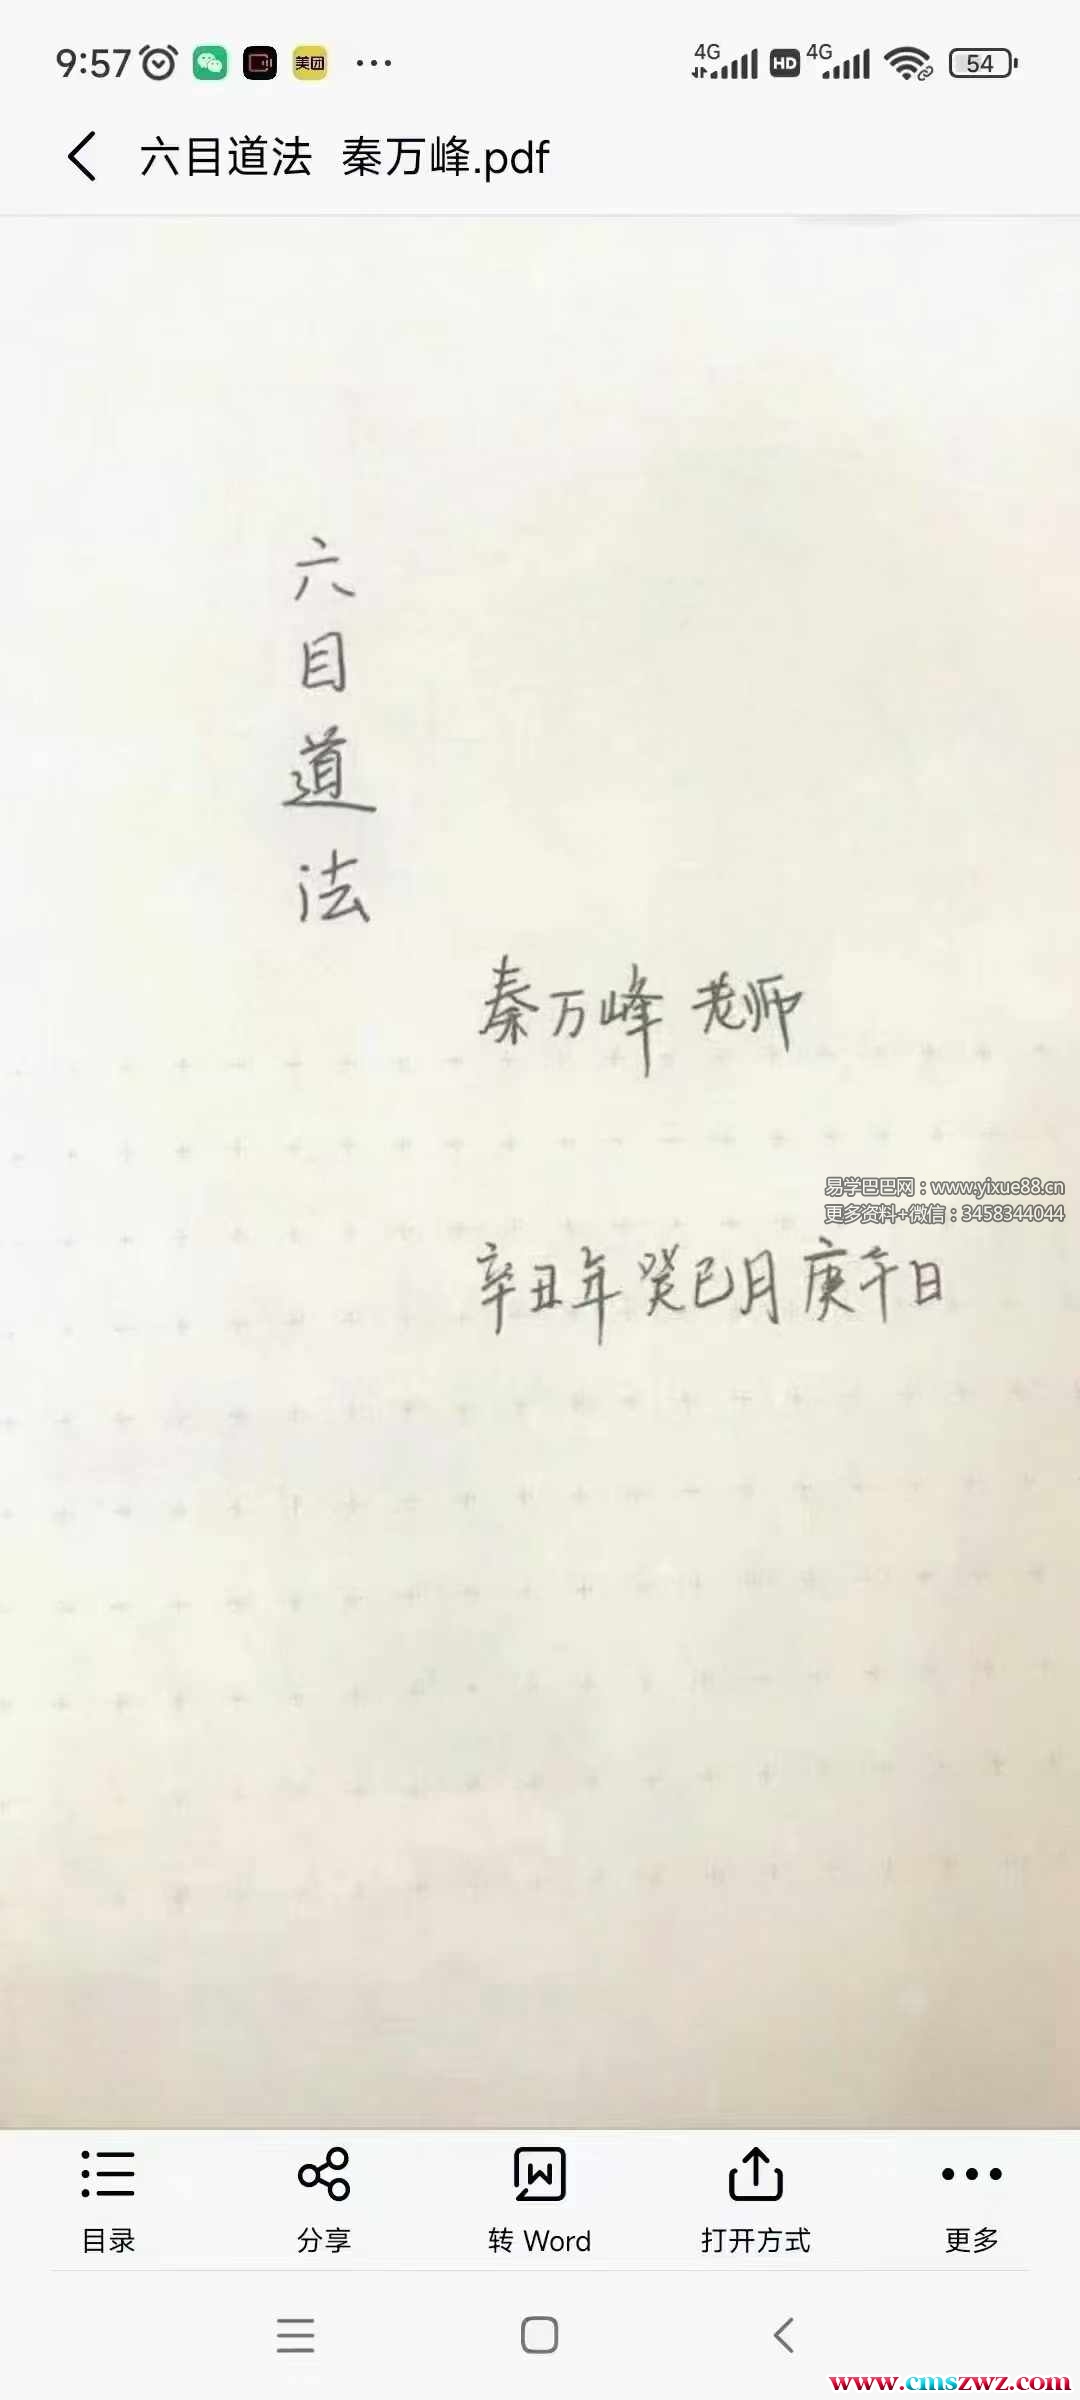 9:57
美团
4G HD 4G 54
六目道法 秦万峰.pdf
六
目
道
法
秦万峰 老师
易学巴巴网：www.yixue88.cn
更多资料+微信：3458344044
辛丑年 癸巳月 庚午日
目录 分享 转 Word 打开方式 更多
www.cmszwz.com